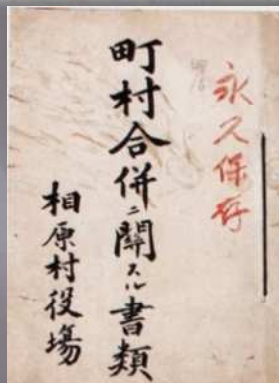 永久保存
町村合併ニ関スル書類
相原村役場